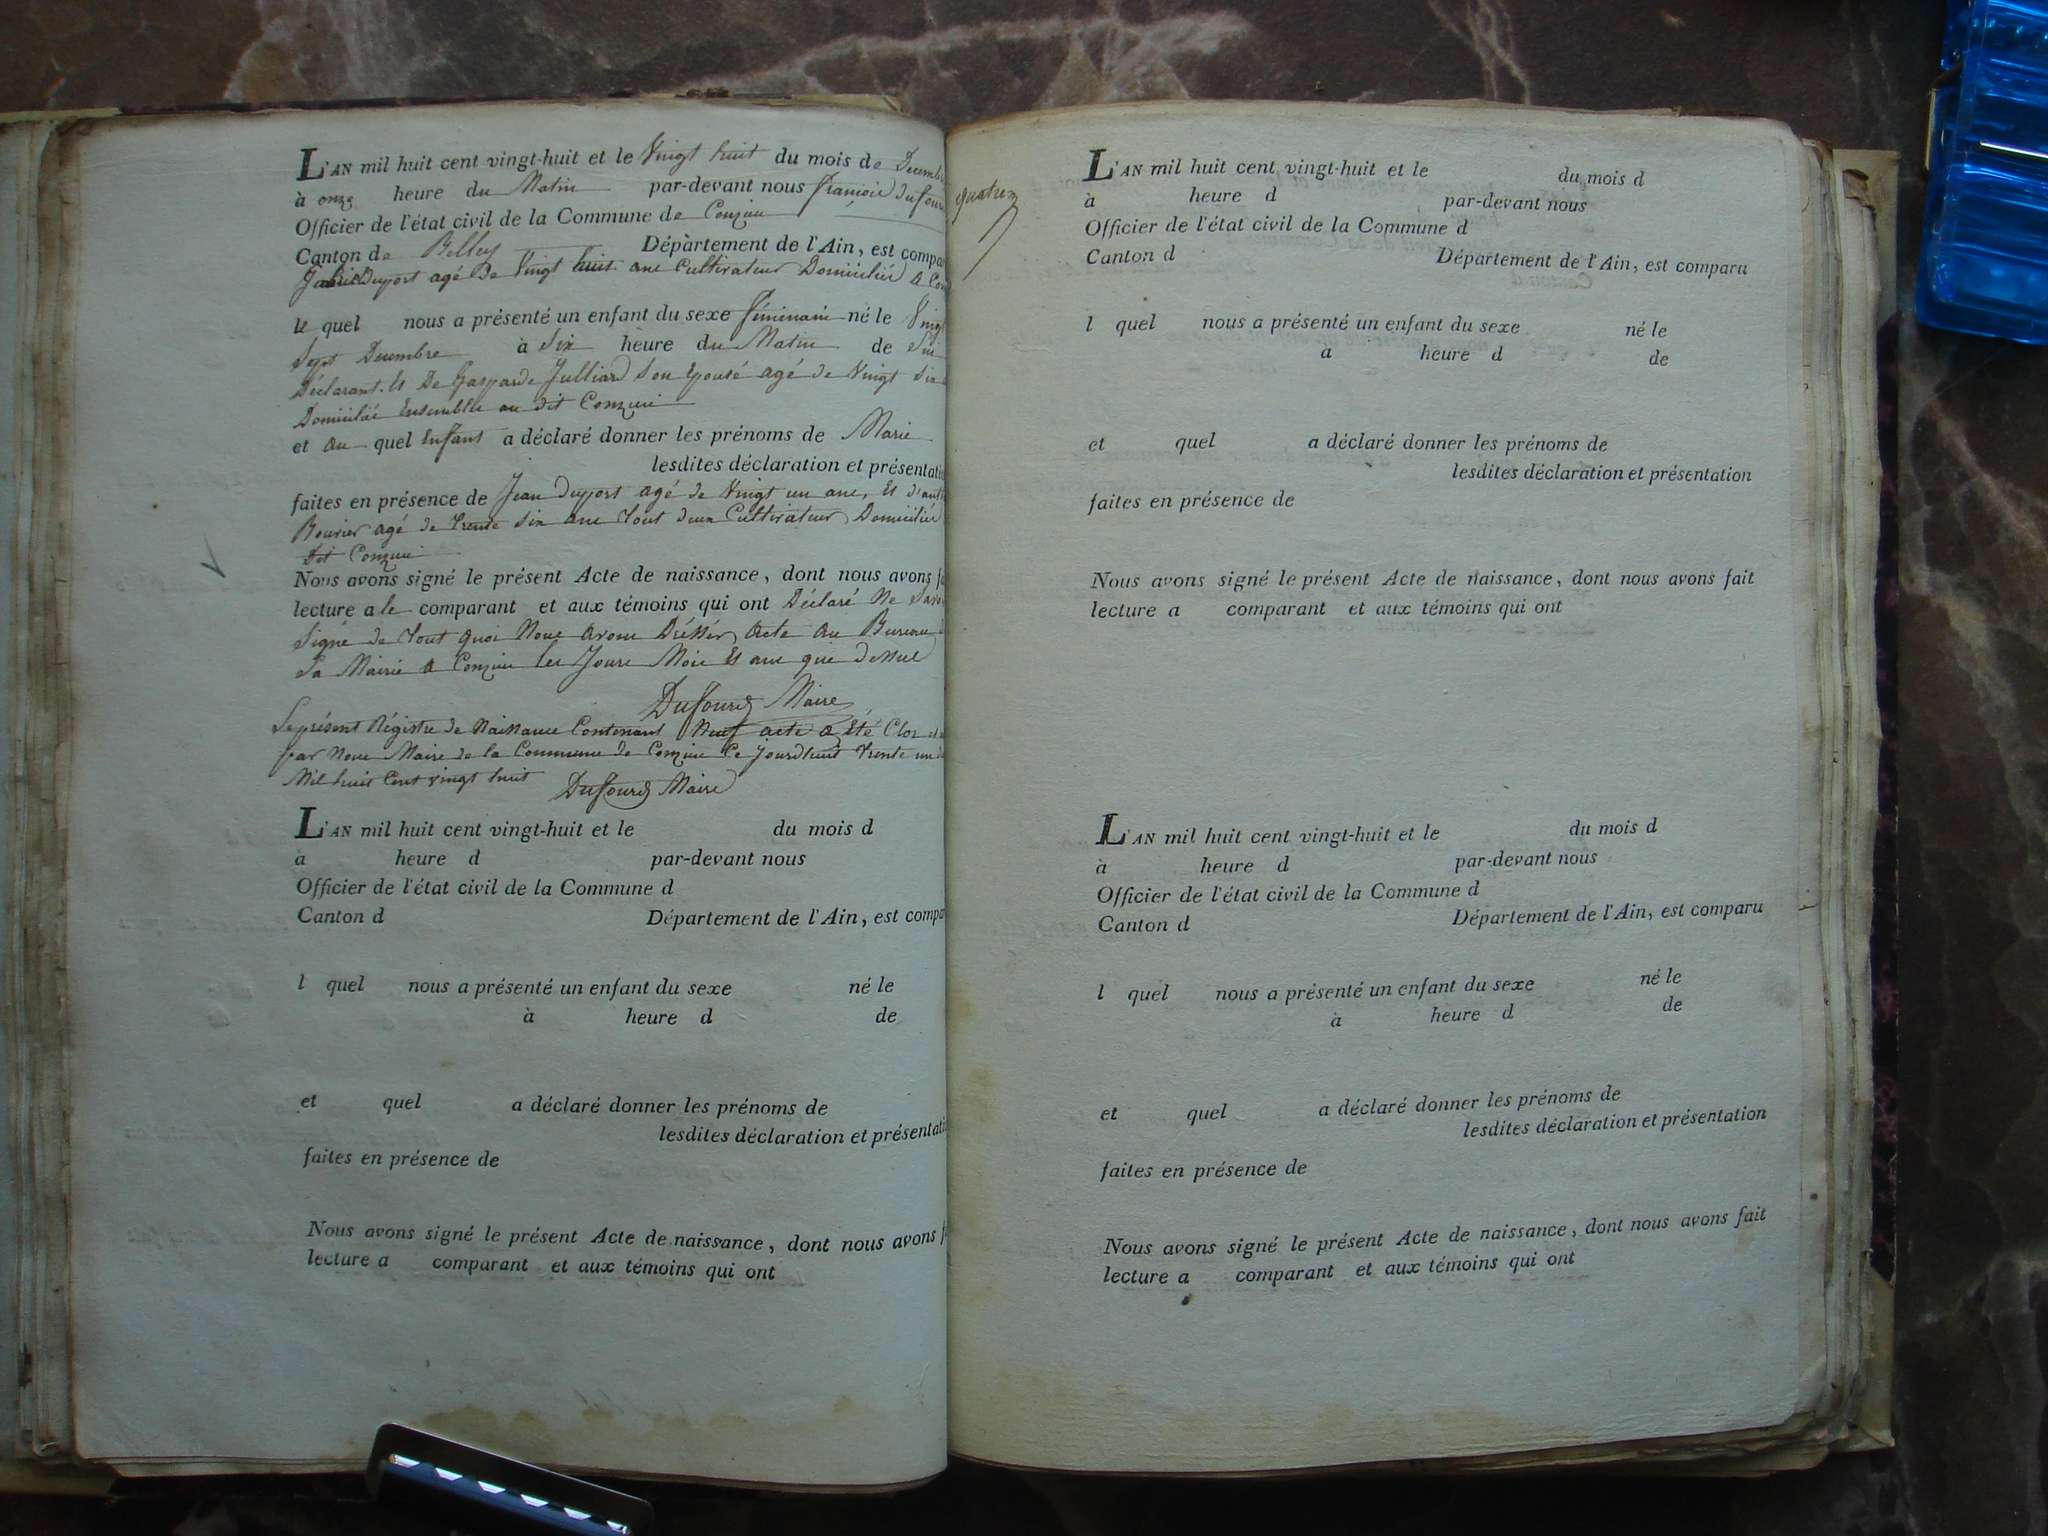 L'AN mil huit cent vingt-huit et le Vingt huit du mois de Decemb
à onze heure du Matin par-devant nous François Dufour
Officier de l'état civil de la Commune de Conzieu
Canton de Belley Département de l'Ain, est compa
Duport agé de Vingt huit ans Cultivateur Domicilié a Con
le quel nous a présenté un enfant du sexe féminain né le Vingt
Sept Decembre à Six heure du Matin de
Déclarant. Et De Gasparde Julliard Son Epousé agé de Vingt Six
Domicilié Ensemble au dit Conzieu
et au quel Enfant a déclaré donner les prénoms de Marie
lesdites déclaration et présentati
faites en présence de Jean Duport agé de Vingt un ans, Et d'ant
Bouvier agé de trente Six ans tout deux Cultivateur Domicilié
Dit Conzieu
Nous avons signé le présent Acte de naissance, dont nous avons fa
lecture a le comparant et aux témoins qui ont Déclaré Ne Savo
Signé de tout quoi Nous avons Drésser acte au Bureau d
la Mairie a Conzieu les Jours Mois Et ans que dessus
Dufour Maire
Le présent Régistre de Naissance Contenant Neuf acte a Eté Clos et
par Nous Maire de la Commune de Conzieu Ce Jourdhuit Trente un
Mil huit Cent vingt huit Dufour Maire
L'AN mil huit cent vingt-huit et le du mois d
à heure d par-devant nous
Officier de l'état civil de la Commune d
Canton d Département de l'Ain, est compa
l quel nous a présenté un enfant du sexe né le
à heure d de
et quel a déclaré donner les prénoms de
lesdites déclaration et présentati
faites en présence de
Nous avons signé le présent Acte de naissance, dont nous avons f
lecture a comparant et aux témoins qui ont
L'AN mil huit cent vingt-huit et le du mois d
à heure d par-devant nous
Officier de l'état civil de la Commune d
Canton d Département de l'Ain, est comparu
l quel nous a présenté un enfant du sexe né le
a heure d de
et quel a déclaré donner les prénoms de
lesdites déclaration et présentation
faites en présence de
Nous avons signé le présent Acte de naissance, dont nous avons fait
lecture a comparant et aux témoins qui ont
L'AN mil huit cent vingt-huit et le du mois d
à heure d par-devant nous
Officier de l'état civil de la Commune d
Canton d Département de l'Ain, est comparu
l quel nous a présenté un enfant du sexe né le
à heure d de
et quel a déclaré donner les prénoms de
lesdites déclaration et présentation
faites en présence de
Nous avons signé le présent Acte de naissance, dont nous avons fait
lecture a comparant et aux témoins qui ont